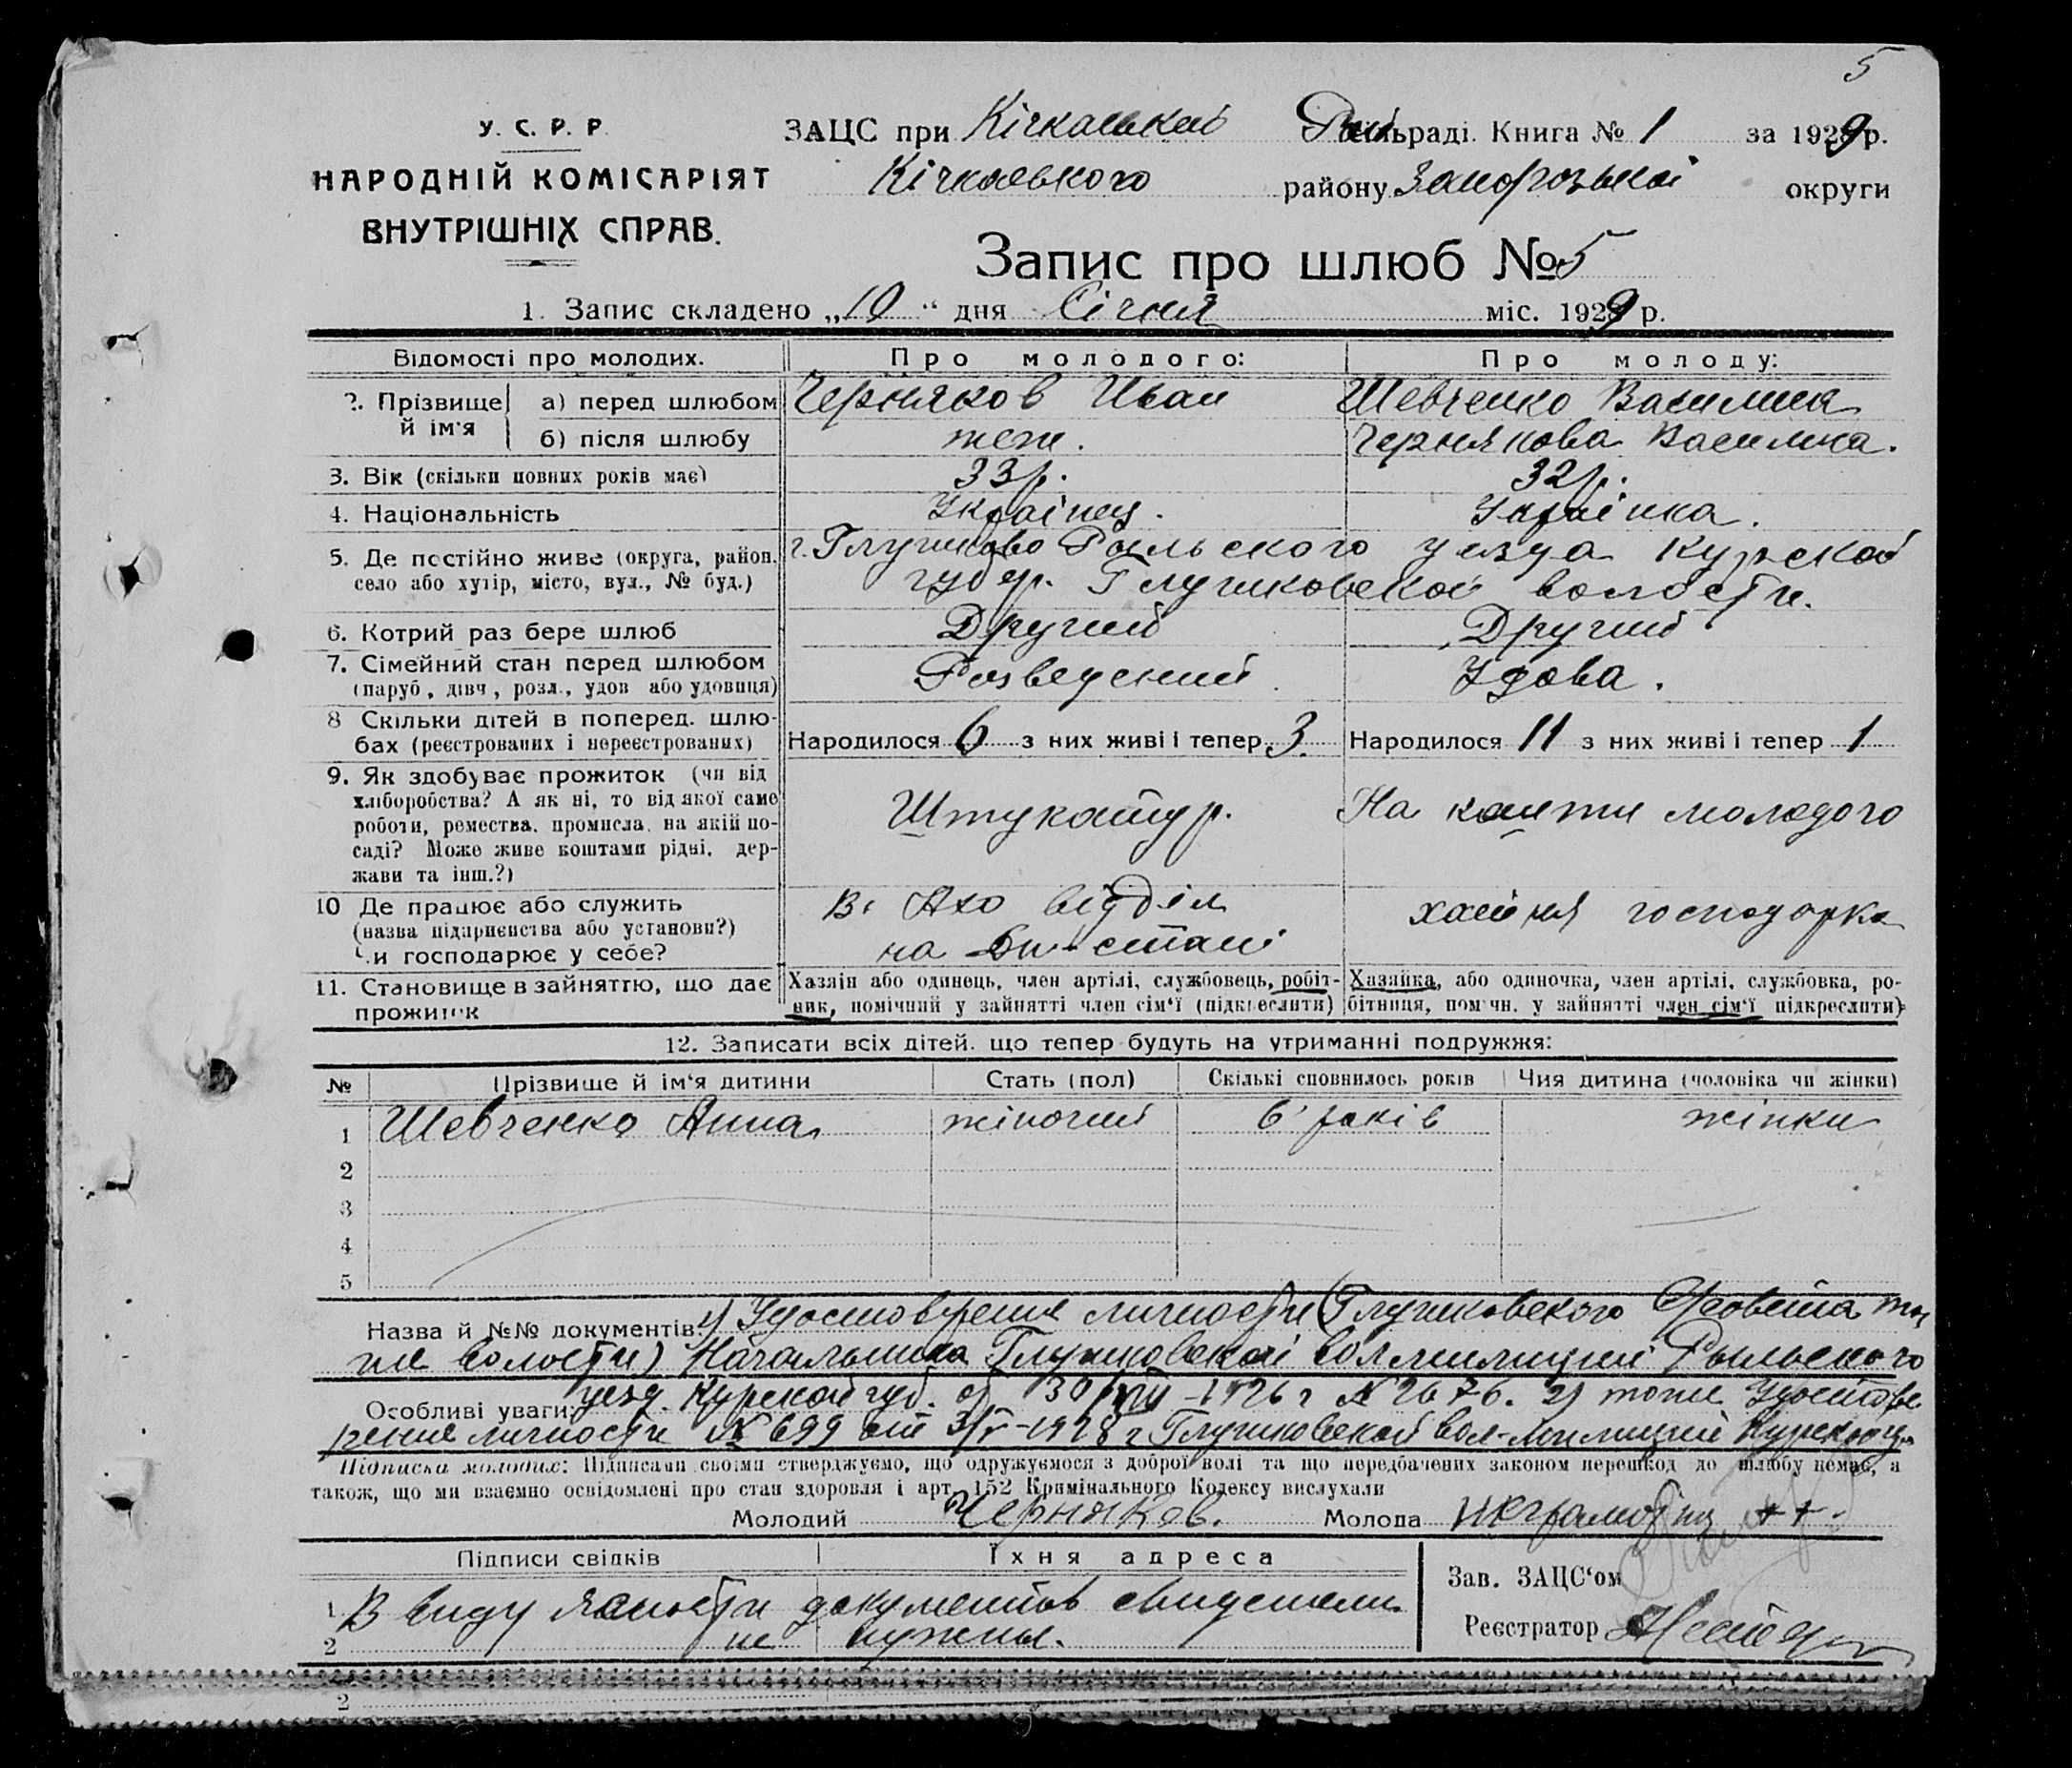 5
У. С. Р. Р.
НАРОДНІЙ КОМІСАРІЯТ
ВНУТРІШНІХ СПРАВ.
ЗАЦС при Кічкаській сільраді. Книга № 1 за 1929 р.
Кічкаського району Запорозької округи
Запис про шлюб № 5
1. Запис складено „10“ дня Січня міс. 1929 р.
Відомості про молодих. Про молодого: Про молоду:
2. Прізвище й ім'я а) перед шлюбом Черняков Иван Шевченко Василиса
б) після шлюбу теж. Чернякова Василиса.
3. Вік (скільки повних років має) 33 р. 32 р.
4. Національність Українец. Українка.
5. Де постійно живе (округа, район, г. Глушково Рыльского уезда Курской
село або хутір, місто, вул., № буд.) губер. Глушковской волости.
6. Котрий раз бере шлюб Другий Другий
7. Сімейний стан перед шлюбом Розведений Удова.
(паруб., дівч., розл., удов або удовиця)
8 Скільки дітей в поперед. шлю-
бах (реєстрованих і нереєстрованих) Народилося 6 з них живі і тепер 3. Народилося 11 з них живі і тепер 1
9. Як здобуває прожиток (чи від
хліборобства? А як ні, то від якої саме
роботи, ремества, промисла, на якій по- Штукатур. На кошти молодого
саді? Може живе коштами рідні, дер-
жави та інш.?)
10 Де працює або служить відділ хатня господарка
(назва підприємства або установи?) на
Чи господарює у себе?
11. Становище в зайняттю, що дає Хазяін або одинець, член артілі, службовець, робіт- Хазяйка, або одиночка, член артілі, службовка, ро-
прожиток ник, помічний у зайнятті член сім'ї (підкреслити) бітниця, пом чн. у зайнятті член сім'ї підкреслити)
12. Записати всіх дітей, що тепер будуть на утриманні подружжя:
№ Прізвище й ім'я дитини Стать (пол) Скількі сповнилось років Чия дитина (чоловіка чи жінки)
1 Шевченко Анна жіночий 6 років жінки
2
3
4
5
Назва й №№ документів: 1) Удостоверение личности (Глушковского
же волости) Начальника Глушковской вол милиции Рыльского
Особливі уваги: уезд. Курской губ. от 30/VIII-1926 г № 2676. 2) тоже Удостове
рение личности № 699 от 3/V-1928 г Глушковской вол-милиции Курской
Підписка молодих: Підписами своіми стверджуємо, що одружуємося з доброї волі та що передбачених законом перешкод до шлюбу немає, а
також, що ми взаємно освідомлені про стан здоровля і арт. 152 Кримінального Кодексу вислухали
Молодий Черняков. Молода неграмотна ++.
Підписи свідків Їхня адреса
Зав. ЗАЦС'ом
1 В виду ясности документов свидетели
2 не нужны.
Реєстратор
2